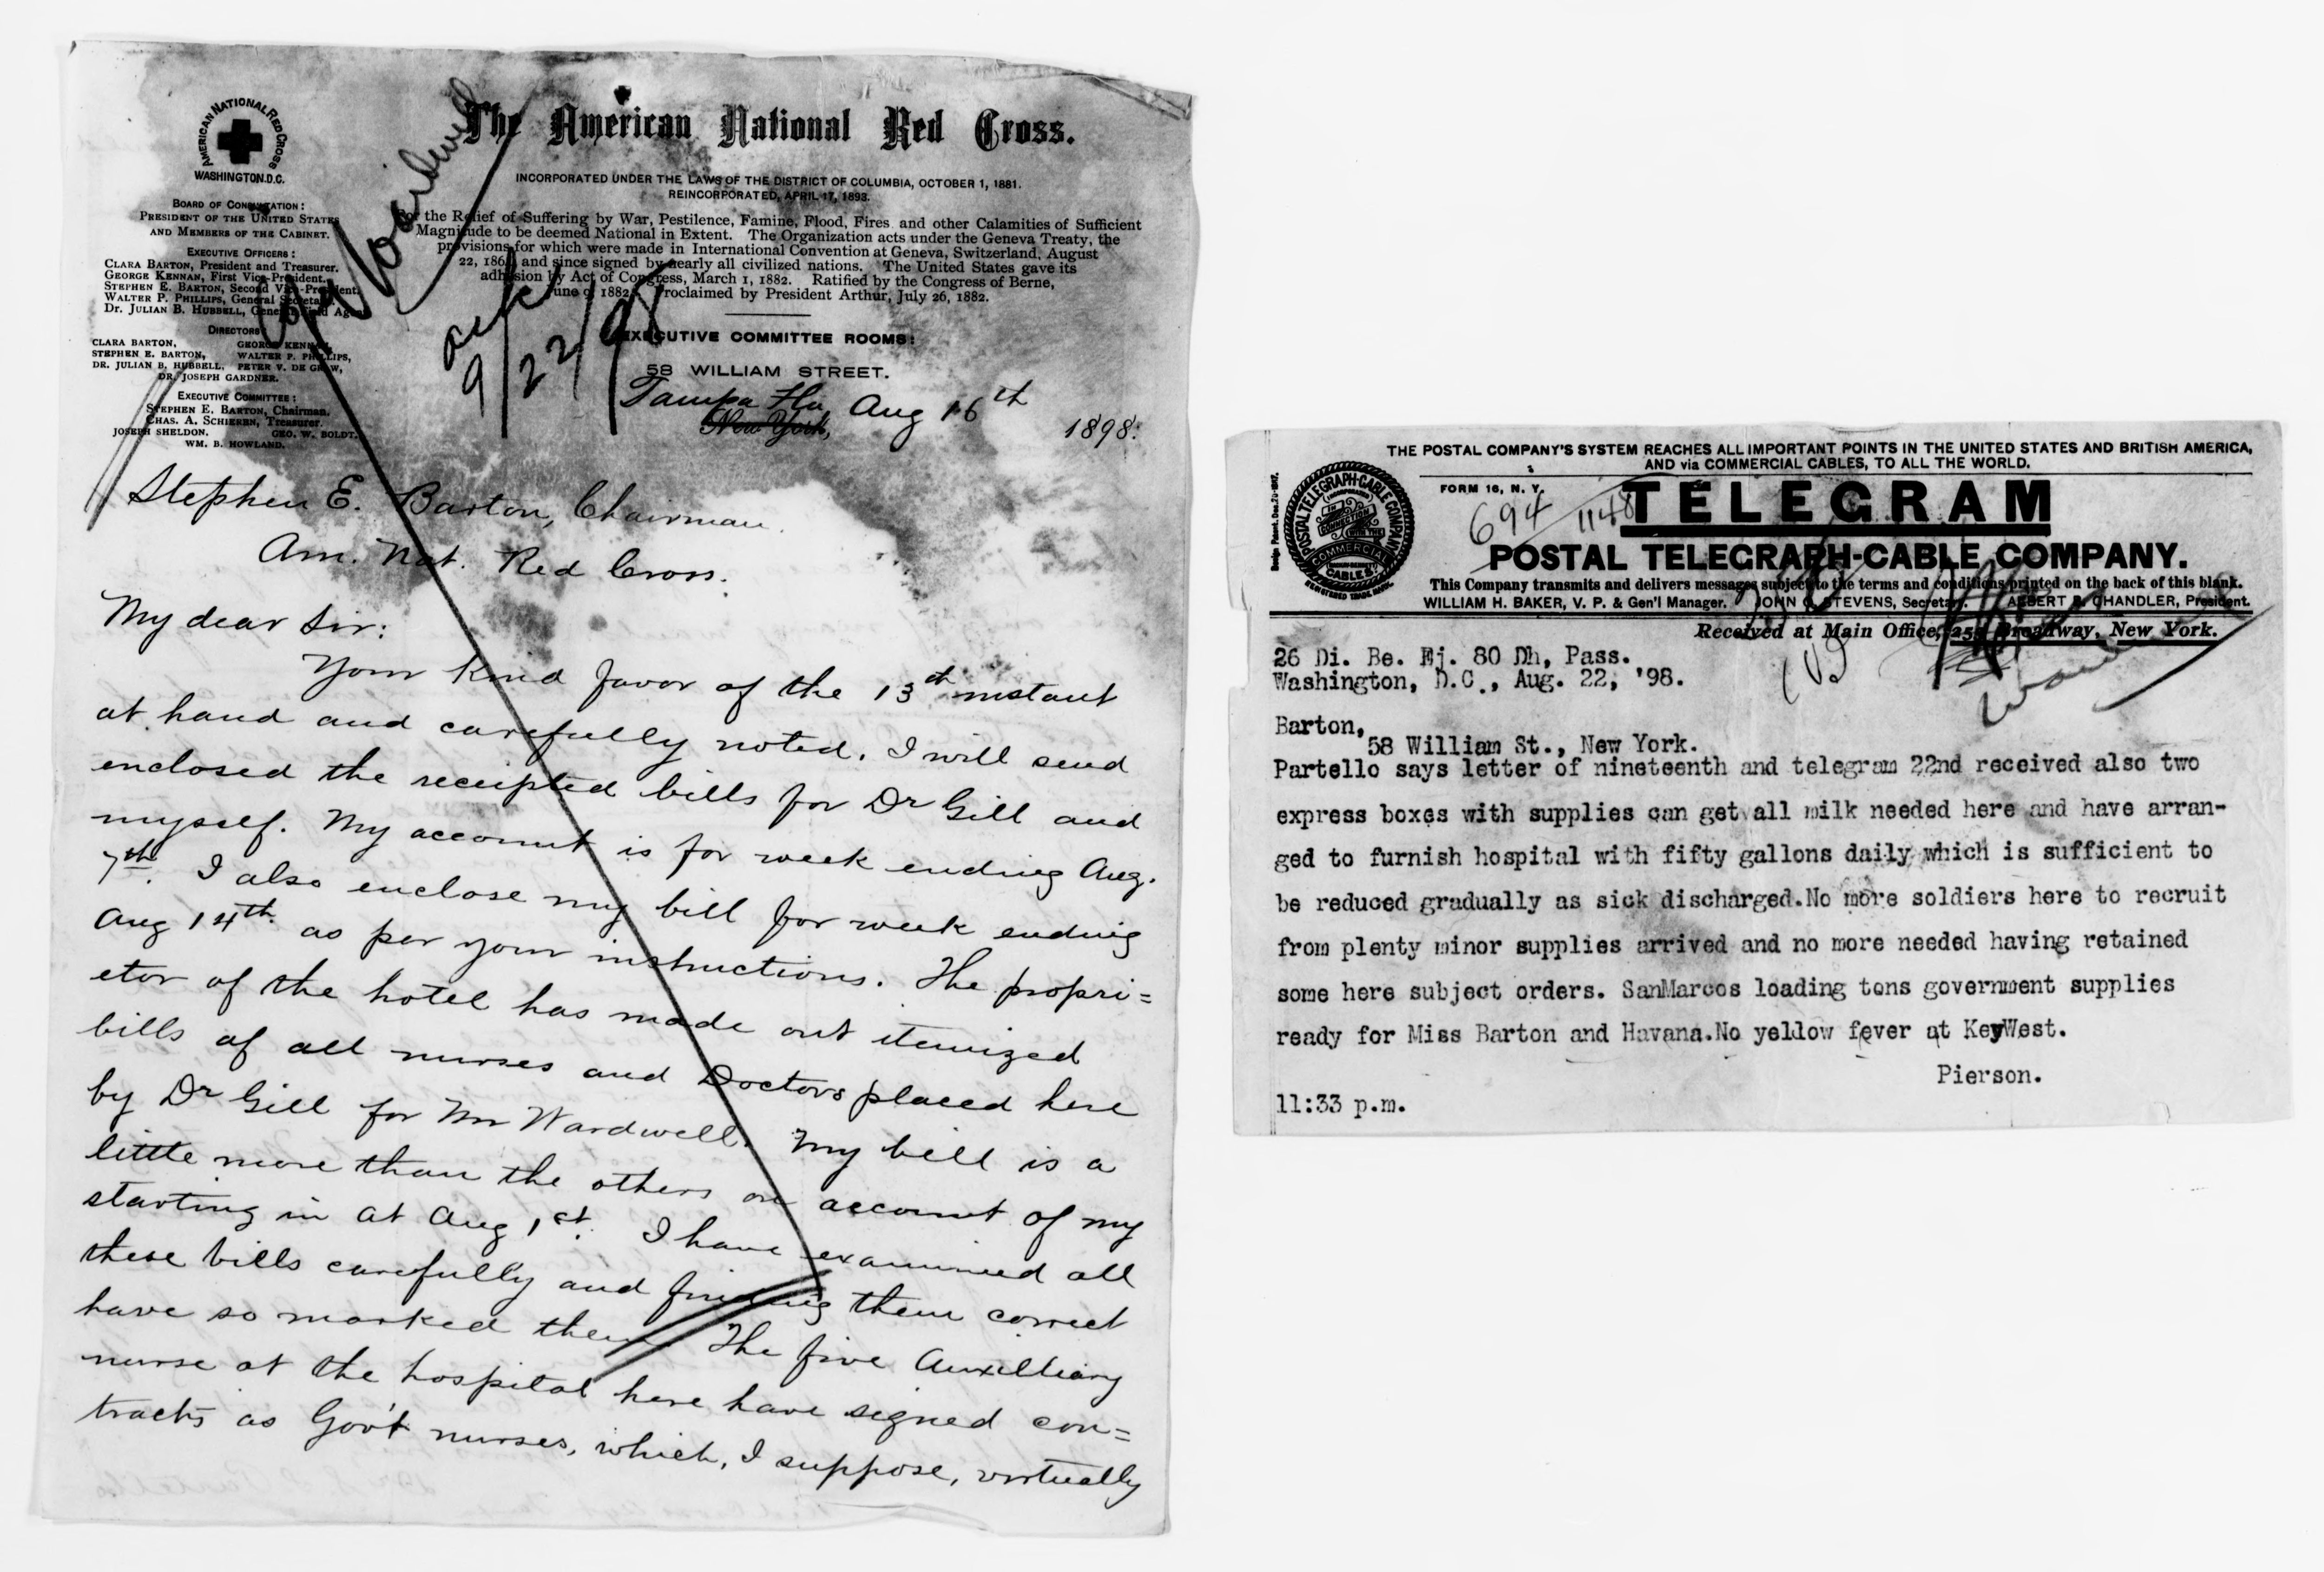 The American National Red Cross.
AMERICAN NATIONAL RED CROSS
WASHINGTON.D.C.
INCORPORATED UNDER THE LAWS OF THE DISTRICT OF COLUMBIA, OCTOBER 1, 1881.
REINCORPORATED, APRIL 17, 1893.
For the Relief of Suffering by War, Pestilence, Famine, Flood, Fires and other Calamities of Sufficient
Magnitude to be deemed National in Extent. The Organization acts under the Geneva Treaty, the
provisions for which were made in International Convention at Geneva, Switzerland, August
22, 1864, and since signed by nearly all civilized nations. The United States gave its
adhesion by Act of Congress, March 1, 1882. Ratified by the Congress of Berne,
June 9, 1882. Proclaimed by President Arthur, July 26, 1882.
BOARD OF CONSULTATION:
PRESIDENT OF THE UNITED STATES
AND MEMBERS OF THE CABINET.
EXECUTIVE OFFICERS:
CLARA BARTON, President and Treasurer.
GEORGE KENNAN, First Vice-President.
STEPHEN E. BARTON, Second Vice-President.
WALTER P. PHILLIPS, General Secretary.
DR. JULIAN B. HUBBELL, General Field Agent.
DIRECTORS
CLARA BARTON, GEORGE KENNAN,
STEPHEN E. BARTON, WALTER P. PHILLIPS,
DR. JULIAN B. HUBBELL, PETER V. DE GRAW,
DR. JOSEPH GARDNER.
EXECUTIVE COMMITTEE:
STEPHEN E. BARTON, Chairman.
CHAS. A. SCHIEREN, Treasurer.
JOSEPH SHELDON. GEO. W. BOLDT.
WM. B. HOWLAND.
ack
9/22/98
EXECUTIVE COMMITTEE ROOMS:
58 WILLIAM STREET.
Tampa Fla, Aug 16th
New York, 1898.
Stephen E. Barton, Chairman.
Am. Nat. Red Cross.
My dear Sir:
Your kind favor of the 13th instant
at hand and carefully noted. I will send
enclosed the receipted bills for Dr Gill and
myself. My account is for week ending Aug.
7th. I also enclose my bill for week ending
Aug 14th. as per your instructions. The propri=
etor of the hotel has made out itemized
bills of all nurses and Doctors placed here
by Dr Gill for Mr Wardwell. My bill is a
little more than the others on account of my
starting in at Aug 1st. I have examined all
these bills carefully and finding them correct
have so marked them. The five Auxilliary
nurse at the hospital here have signed con=
tracts as Gov't nurses, which, I suppose, virtually
THE POSTAL COMPANY'S SYSTEM REACHES ALL IMPORTANT POINTS IN THE UNITED STATES AND BRITISH AMERICA,
AND via COMMERCIAL CABLES, TO ALL THE WORLD.
FORM 16, N. Y.
694 1148
TELEGRAM
POSTAL TELEGRAPH-CABLE COMPANY.
POSTAL TELEGRAPH-CABLE COMPANY
COMMERCIAL CABLES
This Company transmits and delivers messages subject to the terms and conditions printed on the back of this blank.
WILLIAM H. BAKER, V. P. & Gen'l Manager. JOHN O. STEVENS, Secretary. ALBERT B. CHANDLER, President.
Received at Main Office, 253 Broadway, New York.
26 Di. Be. Mj. 80 Dh, Pass.
Washington, D.C., Aug. 22, '98.
Barton,
58 William St., New York.
Partello says letter of nineteenth and telegram 22nd received also two
express boxes with supplies can get all milk needed here and have arran-
ged to furnish hospital with fifty gallons daily which is sufficient to
be reduced gradually as sick discharged.No more soldiers here to recruit
from plenty minor supplies arrived and no more needed having retained
some here subject orders. SanMarcos loading tons government supplies
ready for Miss Barton and Havana.No yellow fever at KeyWest.
Pierson.
11:33 p.m.